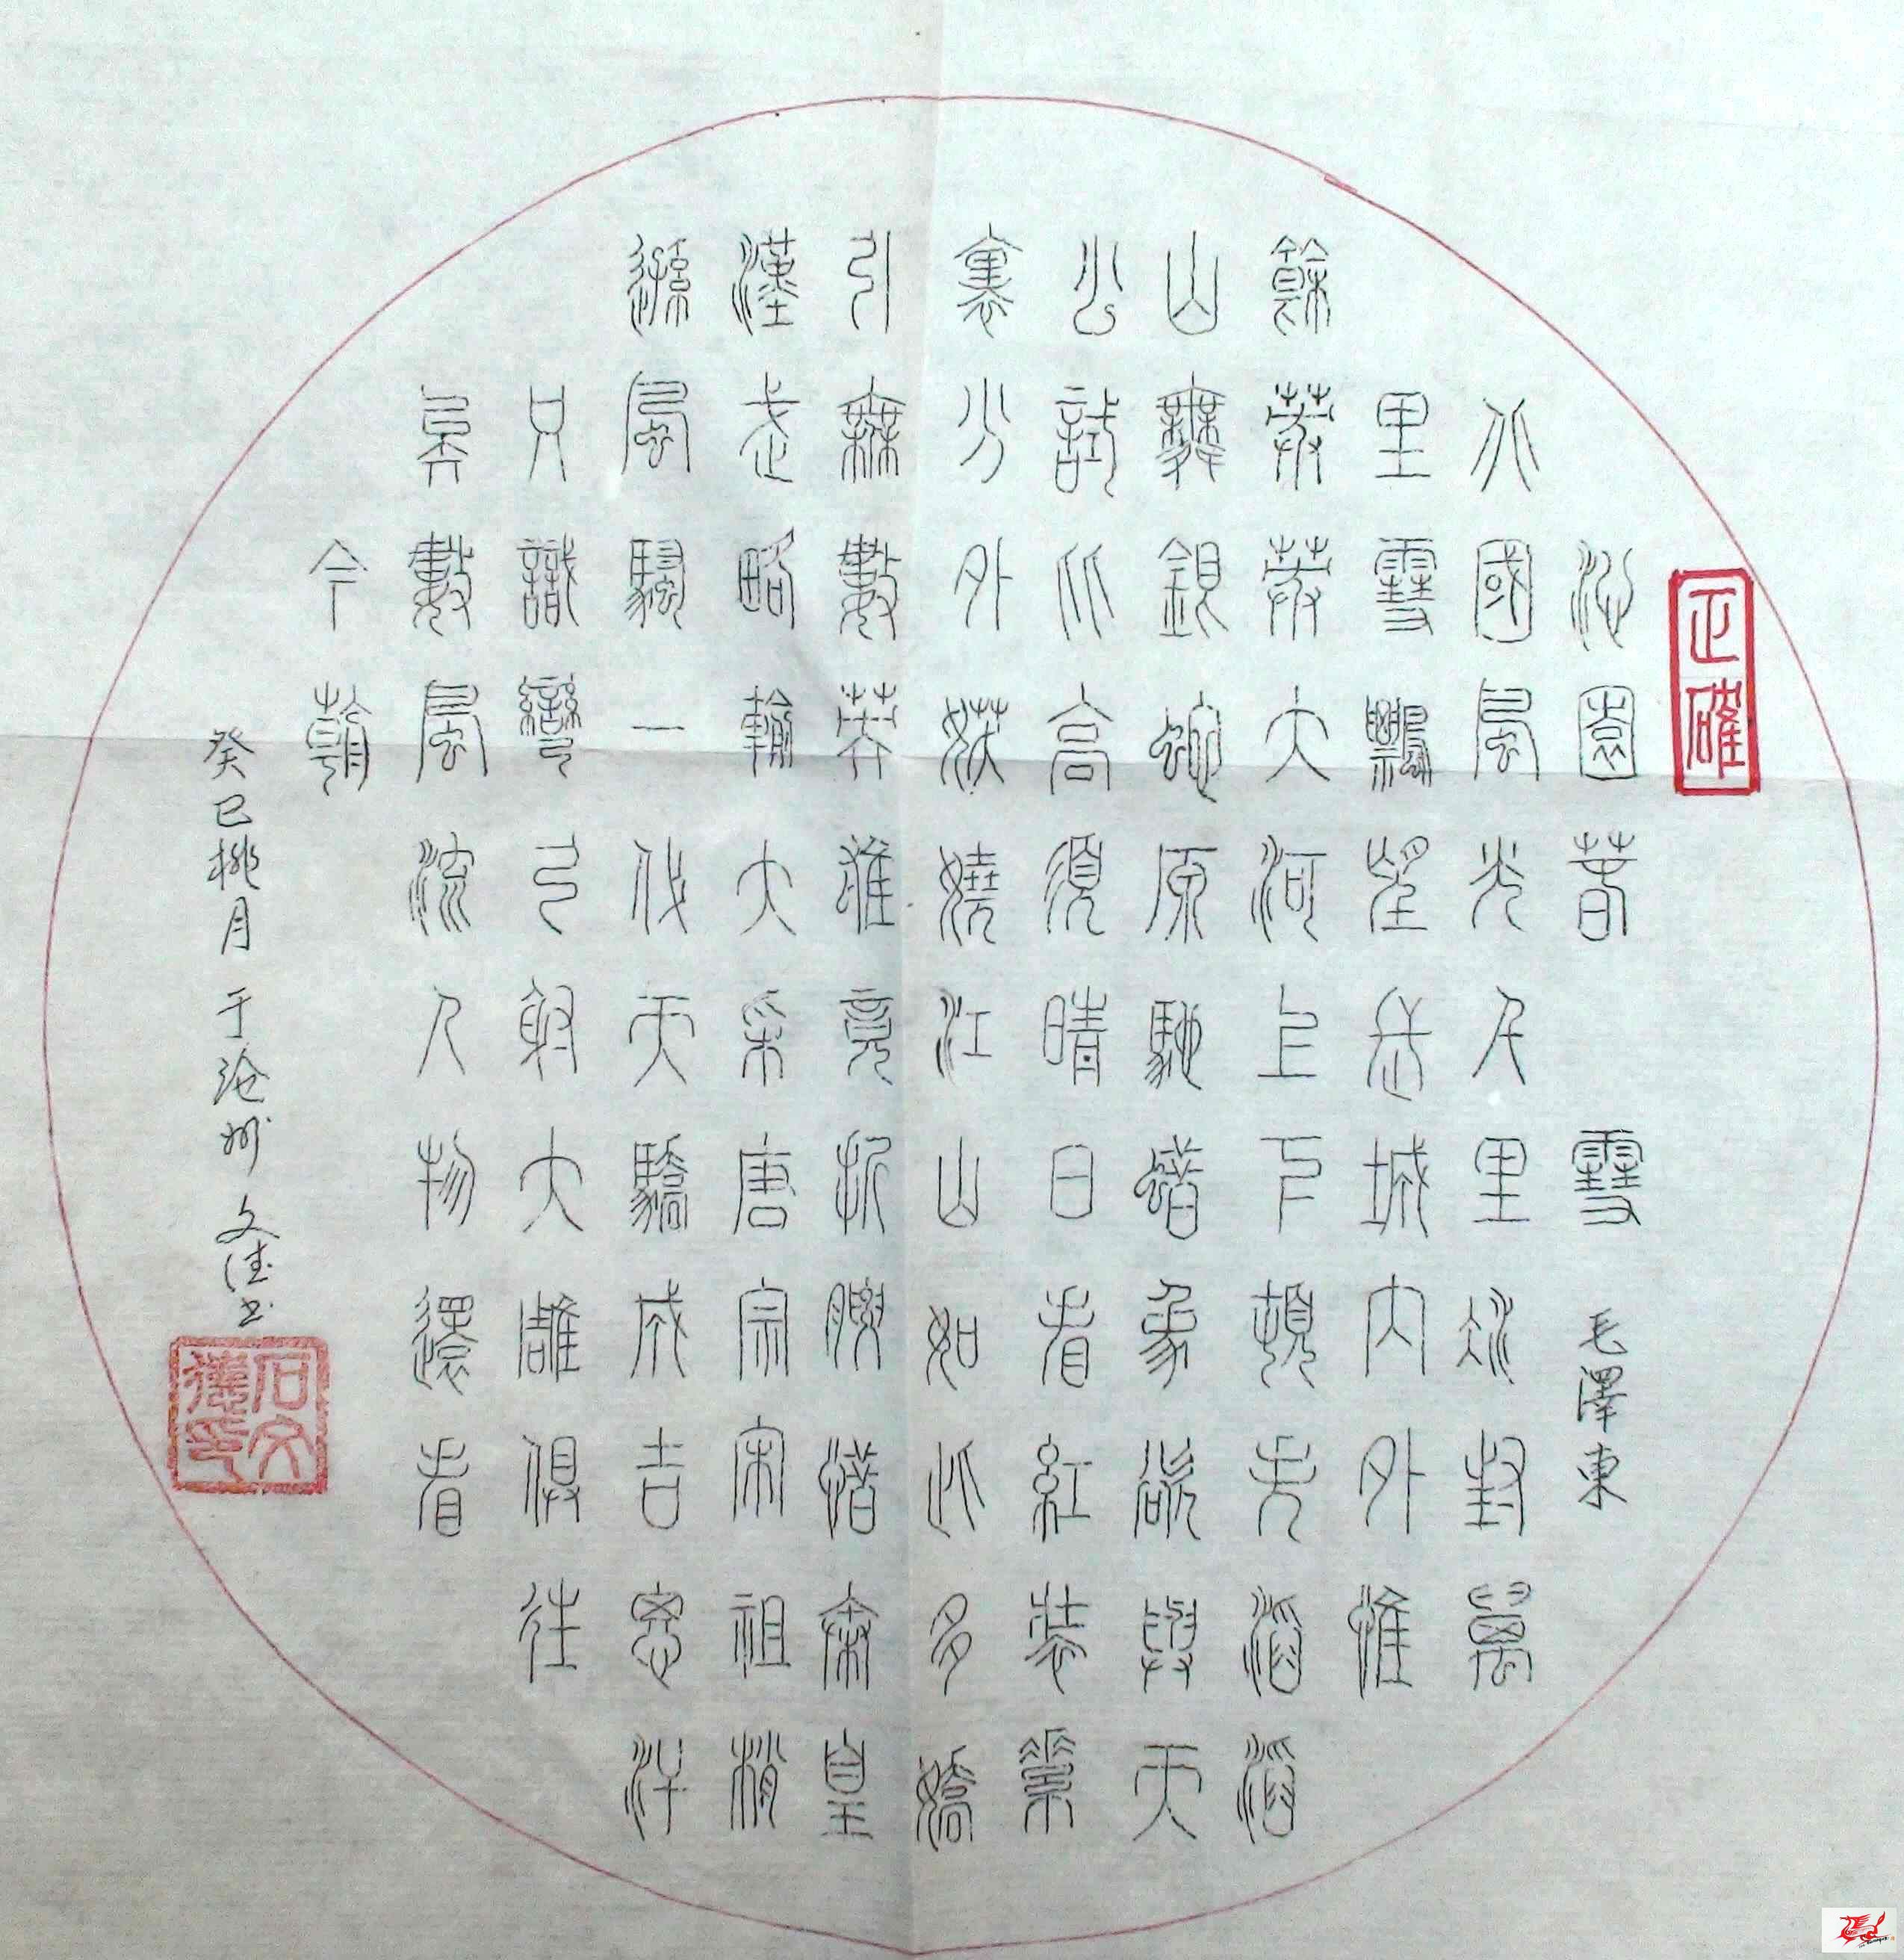 正確
沁園春 雪 毛澤東
北國風光千里冰封萬
里雪飄望長城內外惟
餘莽莽大河上下頓失滔滔
山舞銀蛇原馳蠟象欲與天
公試比高須晴日看紅裝素
裹分外妖嬈江山如此多嬌
引無數英雄竟折腰惜秦皇
漢武略輸文采唐宗宋祖稍
遜風騷一代天驕成吉思汗
只識彎弓射大雕俱往
矣數風流人物還看
今朝
癸巳桃月 于沧州 文书
石文印